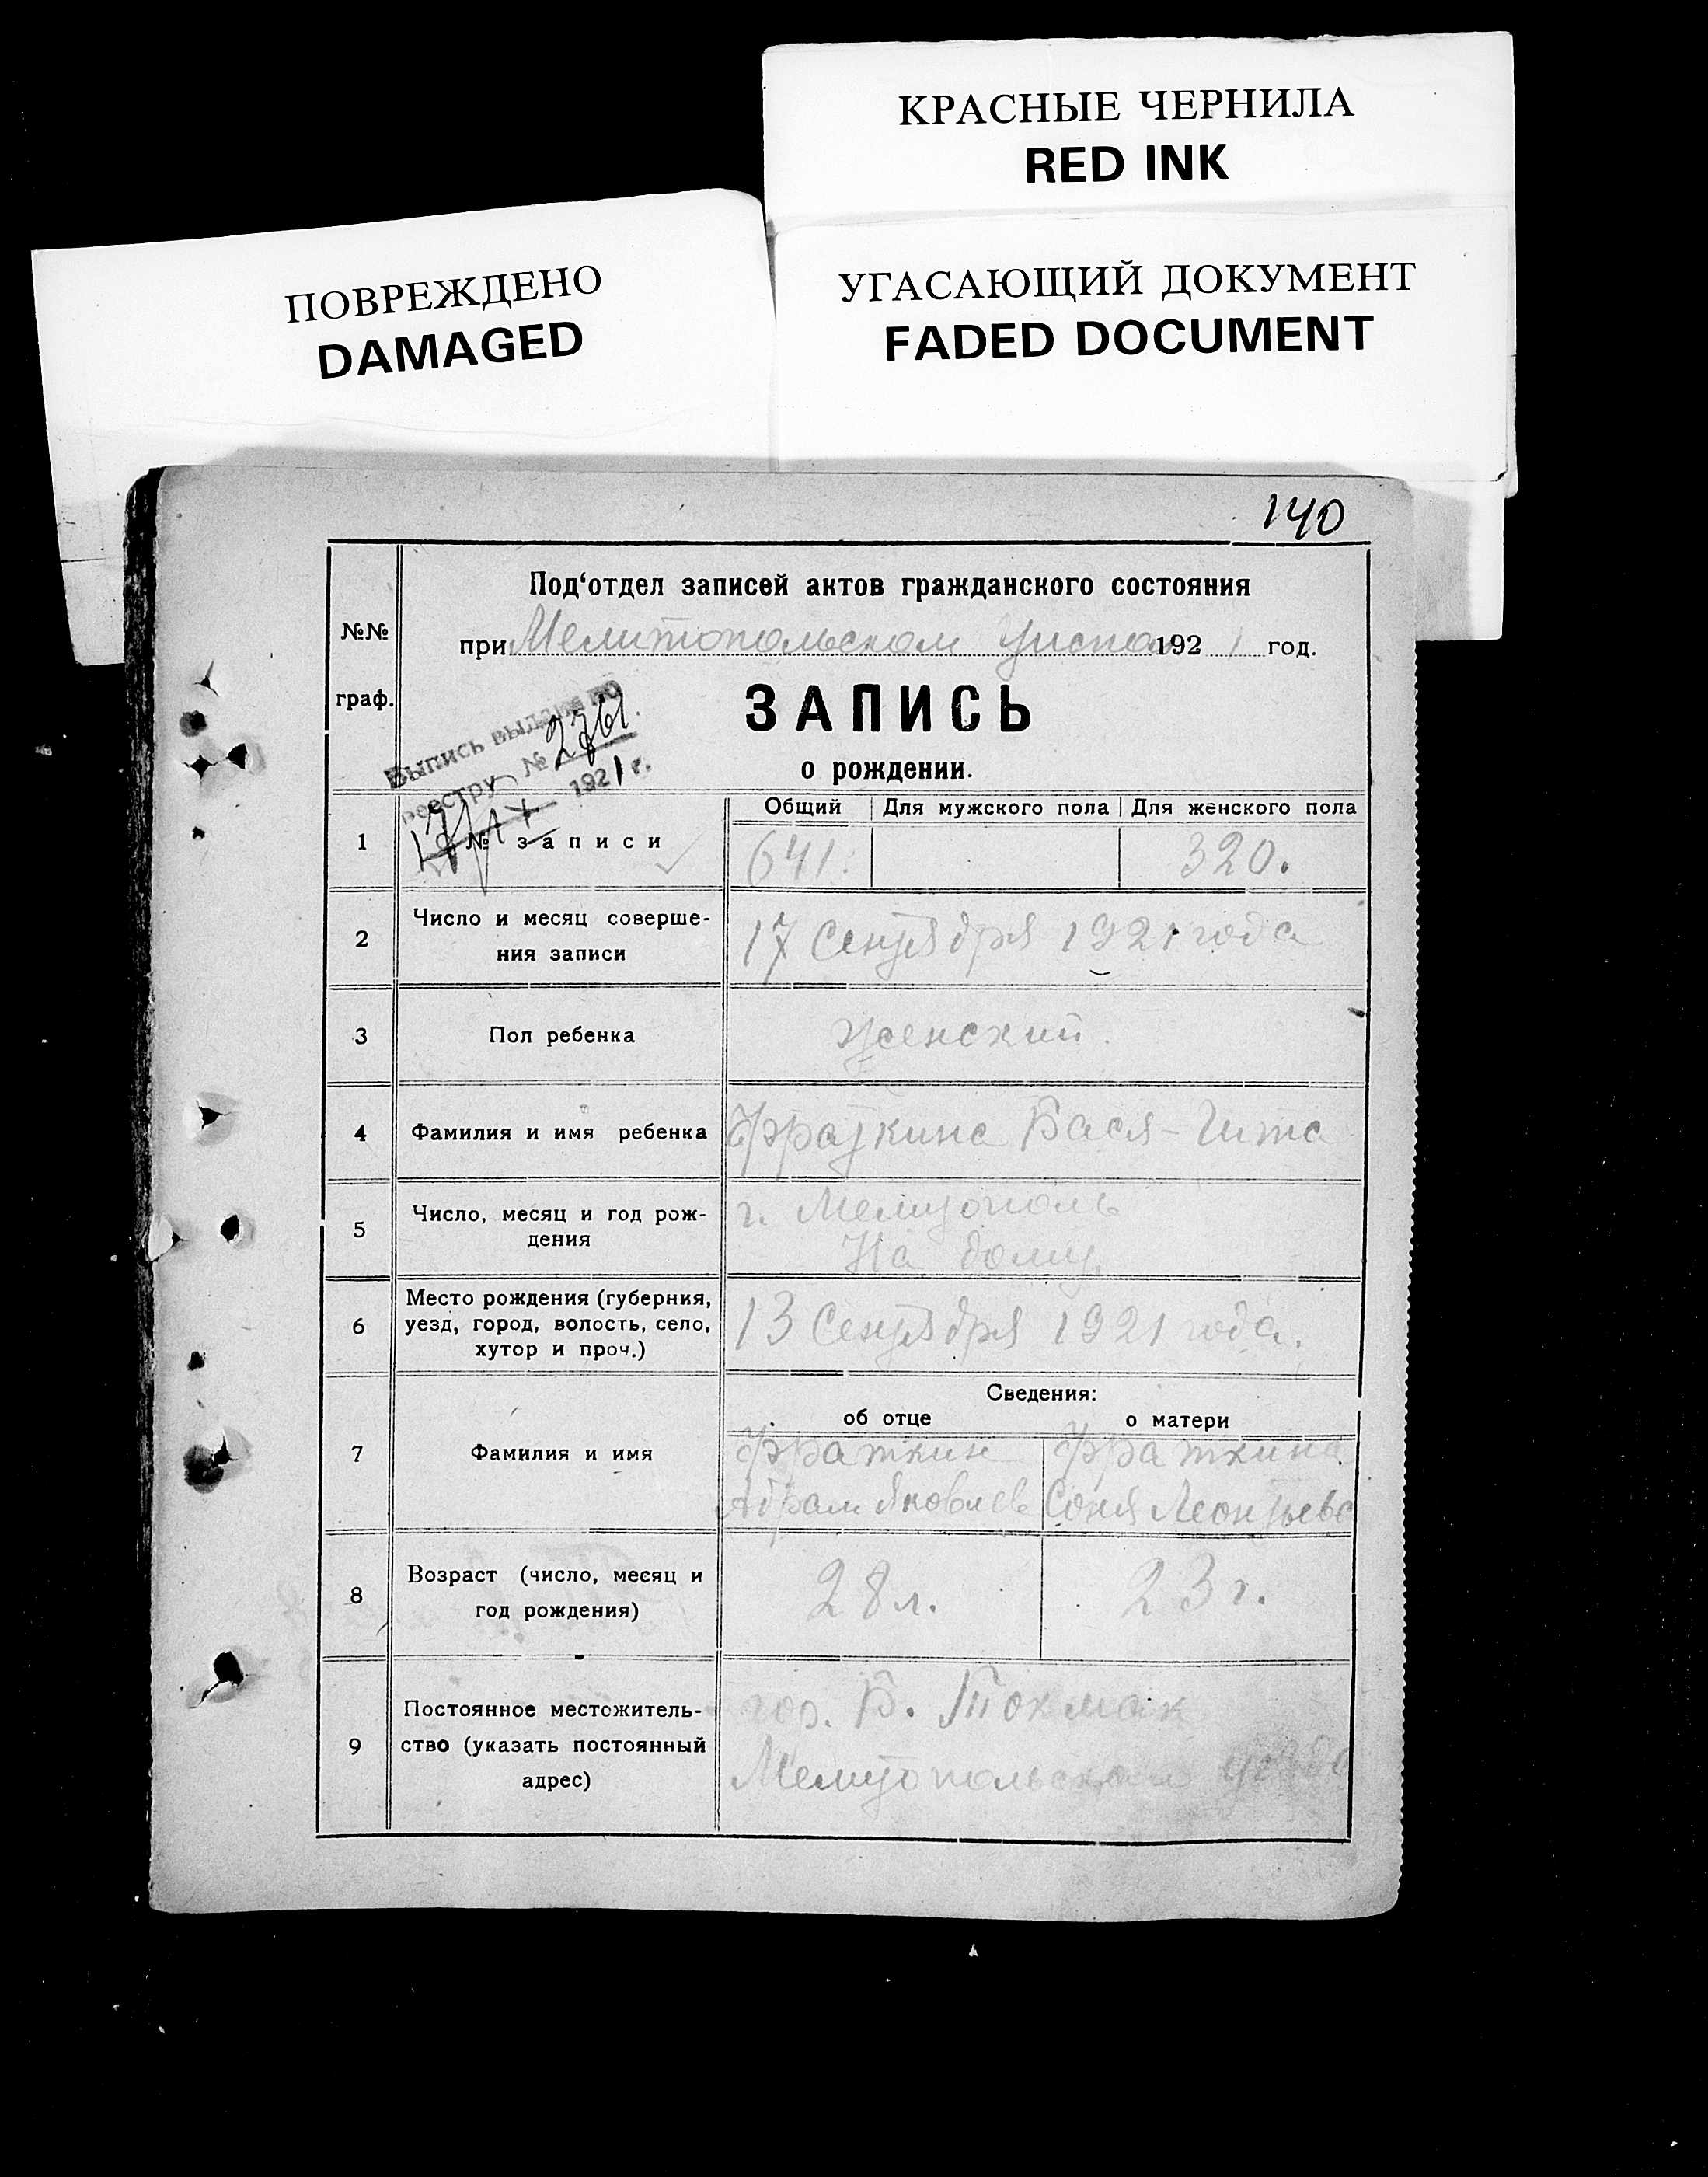 КРАСНЫЕ ЧЕРНИЛА
RED INK
ПОВРЕЖДЕНО
DAMAGED
УГАСАЮЩИЙ ДОКУМЕНТ
FADED DOCUMENT
140
№№
граф.
Под'отдел записей актов гражданского состояния
при Мелитопольском Уисполк 1921 год.
Выпись выдана по
реестру № 2761.
1921 г.
ЗАПИСЬ
о рождении.
Общий Для мужского пола Для женского пола
1 № записи 641. 320.
2 Число и месяц соверше-
ния записи
17 Сентября 1921 года
3 Пол ребенка Женский.
4 Фамилия и имя ребенка Фраткина Бася-Гита
5 Число, месяц и год рож-
дения
г. Мелитополь
На дому.
6 Место рождения (губерния,
уезд, город, волость, село,
хутор и проч.)
13 Сентября 1921 года.
Сведения:
об отце о матери
7 Фамилия и имя
Фраткин Фраткина
Абрам Яковлев Соня Леонтьева
8 Возраст (число, месяц и
год рождения)
28 л. 23 г.
9 Постоянное местожитель-
ство (указать постоянный
адрес)
гор. Б. Токмак
Мелитопольского уезда